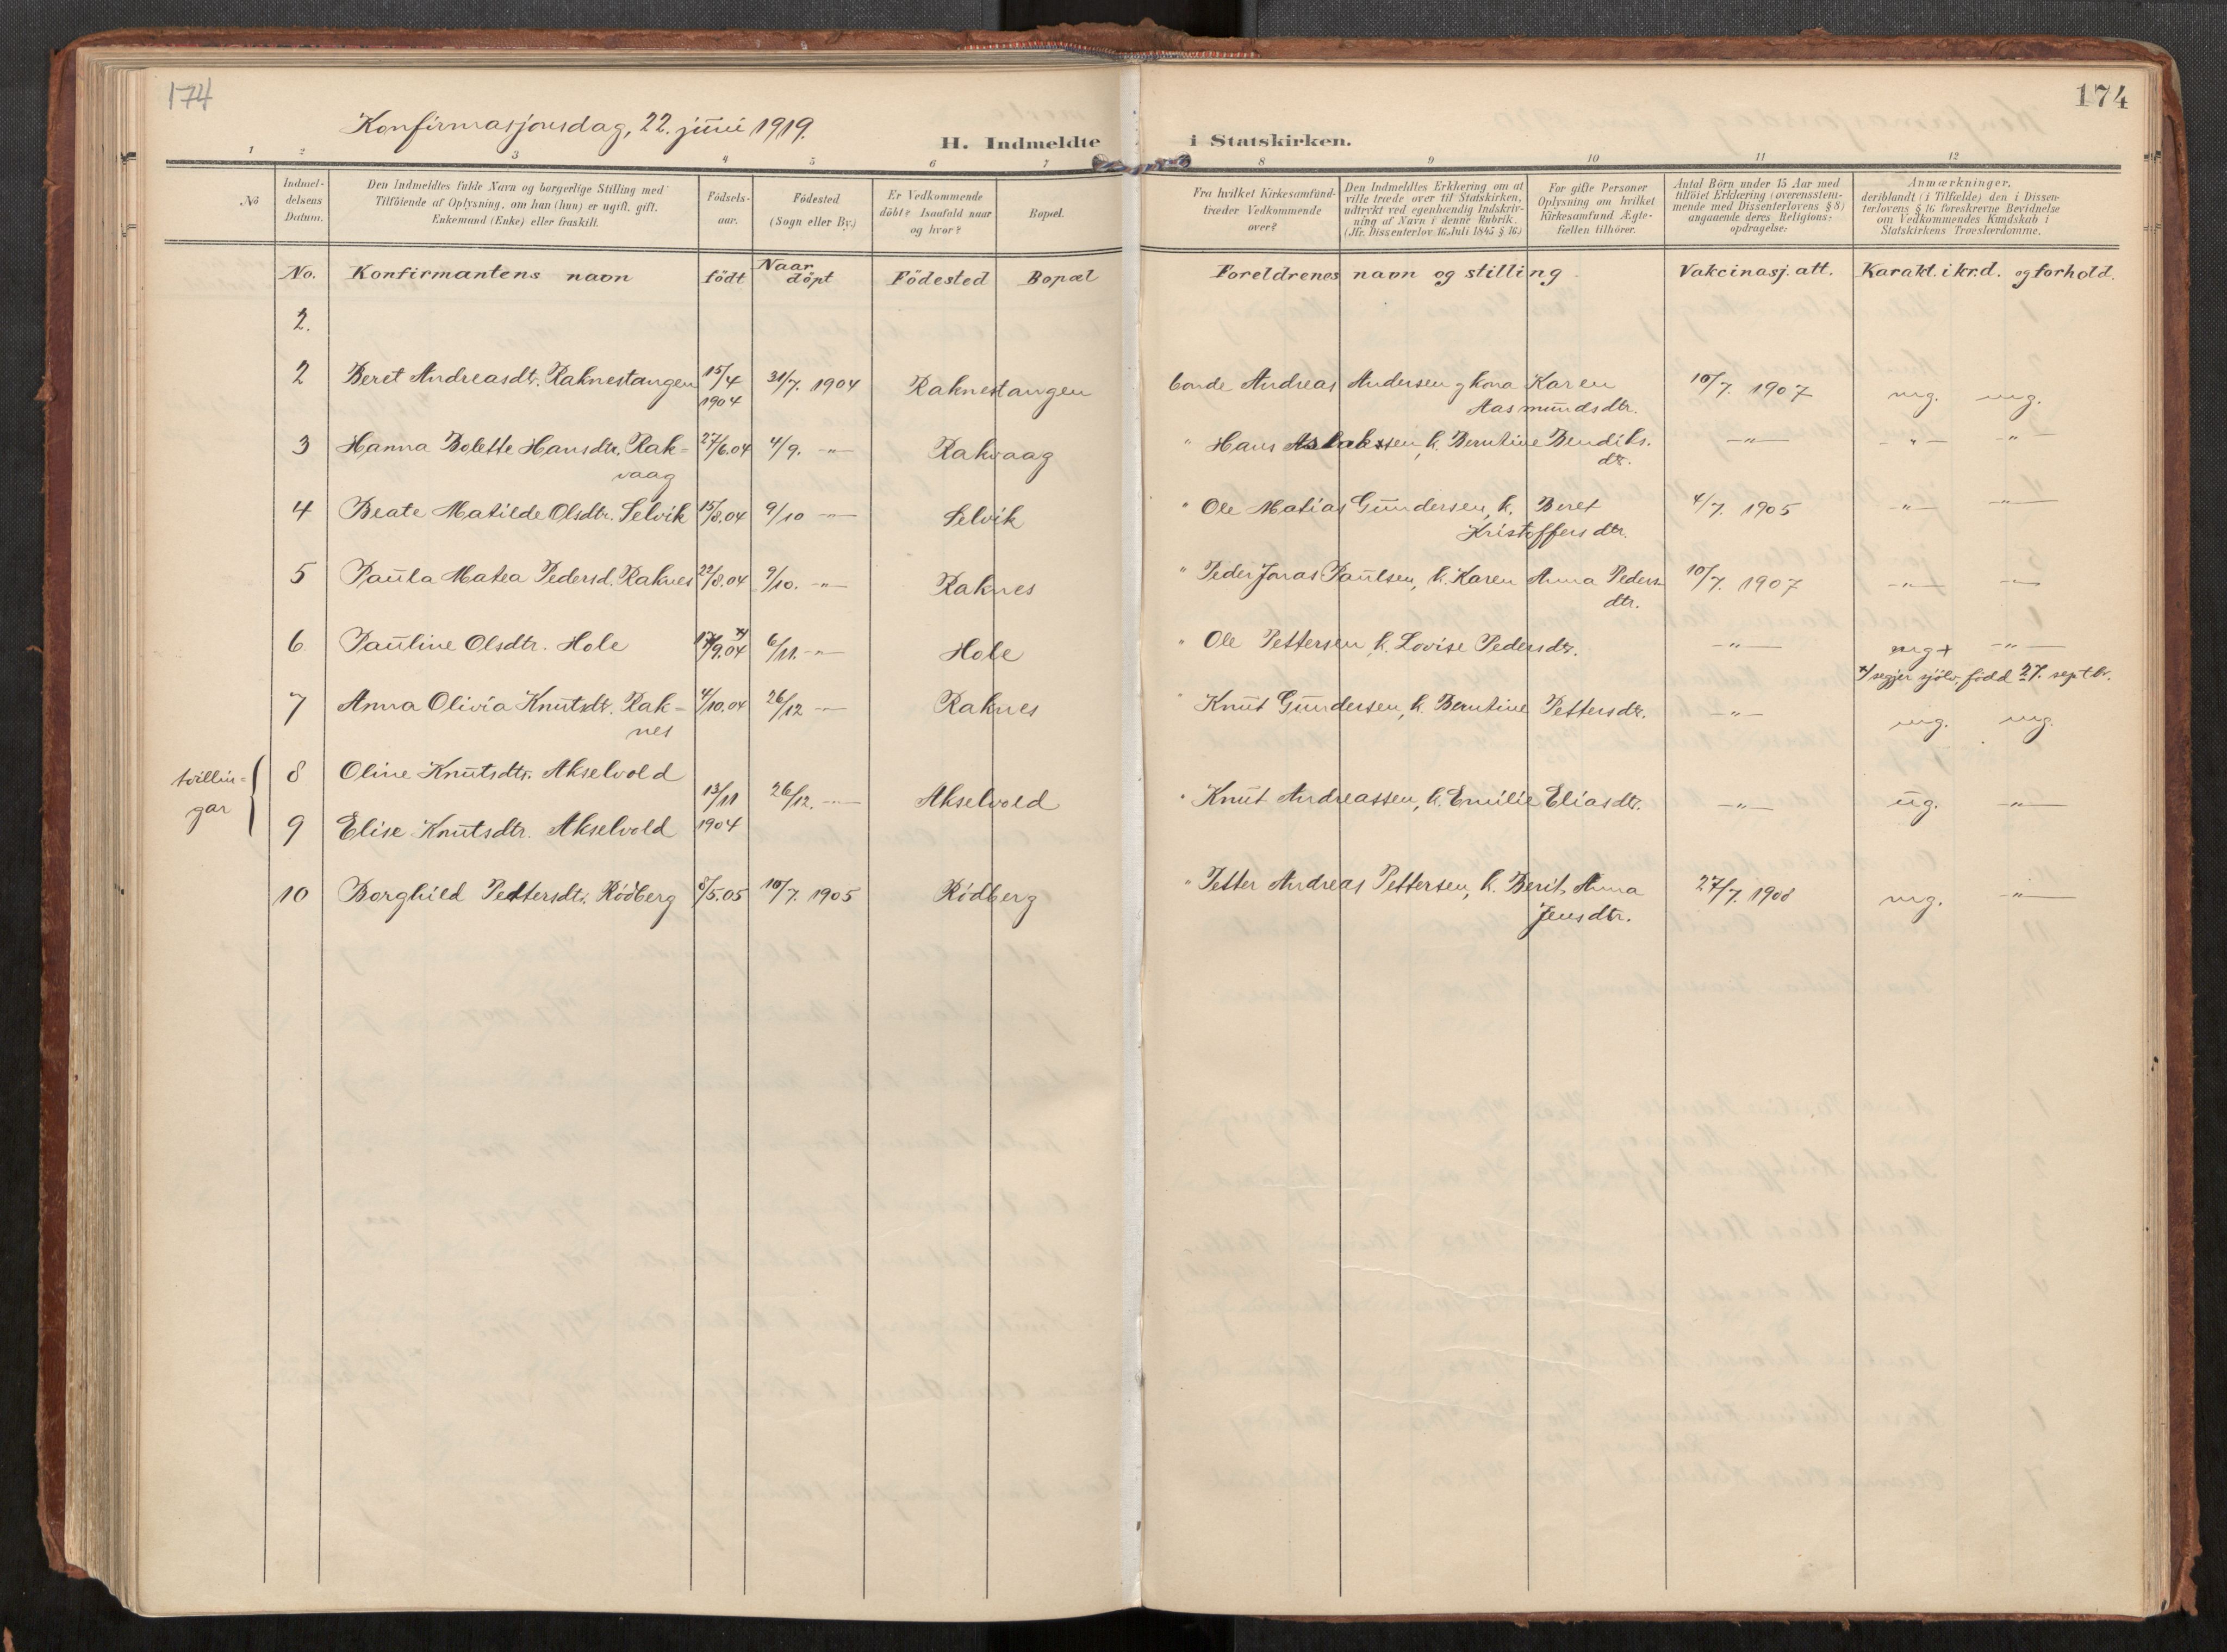 174
174
Konfirmasjonsdag, 22. juni 1919.
H. Indmeldte i Statskirken.
1 2 3 4 5 6 7 8 9 10 11 12
Nò
Indmel-
delsens
Datum.
Den Indmeldtes fulde Navn og borgerlige Stilling med
Tilföiende af Oplysning, om han (hun) er ugift, gift,
Enkemand (Enke) eller fraskilt.
Födsels-
aar.
Födested
(Sogn eller By.)
Er Vedkommende
döbt? Isaafald naar
og hvor?
Bopæl.
Fra hvilket Kirkesamfund
træder Vedkommende
over?
Den Indmeldtes Erklæring om at
ville træde over til Statskirken,
udtrykt ved egenhændig Indskriv-
ning af Navn i denne Rubrik.
(Jfr. Dissenterlov 16 Juli 1845 § 16.)
For gifte Personer
Oplysning om hvilket
Kirkesamfund Ægte-
fællen tilhörer.
Antal Börn under 15 Aar med
tilföiet Erklæring (overensstem-
mende med Dissenterlovens § 8)
angaaende deres Religions-
opdragelse.
Anmærkninger,
deriblandt (i Tilfælde) den i Dissen-
terlovens § 16 foreskrevne Bevidnelse
om Vedkommendes Kundskab i
Statskirkens Troeslærdomme.
No. Konfirmantens navn födt Naar döpt Födested Bopæl Foreldrenes navn og stilling Vakcinasj. att. Karakt. i krd. og forhold.
2.
2 Beret Andreasdtr. Raknestangen 15/4 1904 31/7. 1904 Raknestangen bonde Andreas Andersen og kona Karen
Aasmundsdtr. 10/7. 1907 mg. mg.
3 Hanna Bolette Hansdtr. Rak=
vaag 27/6.04 4/9. -"- Rakvaag " Hans Aslakssen, k. Berntine Bendiks.
dtr. -"- -"- -"-
4 Beate Matilde Olsdtr. Selvik 15/8.04 9/10 -"- Selvik " Ole Matias Gundersen, k. Beret
Kristoffersdtr. 4/7. 1905 -"- -"-
5 Paula Matea Pedersd. Raknes 22/8.04 9/10. -"- Raknes " Peder Jonas Paulsen, k. Karen Anna Peders
dtr. 10/7. 1907 -"- -"-
6 Pauline Olsdtr. Hole 17/9.04 x) 6/11. -"- Hole " Ole Pettersen k. Lovise Pedersdtr. -"- mg+ -"-
x/ segjer sjölv, född 27. septbr.
7 Anna Olivia Knutsdtr. Rak=
nes 4/10.04 26/12 -"- Raknes " Knut Gundersen, k. Berntine Pettersdtr. -"- mg. mg.
tvillin=
gar
8 Oline Knutsdtr. Akselvold
9 Elise Knutsdtr. Akselvold
13/11 1904 26/12. -"- Akselvold " Knut Andreassen, k. Emilie Eliasdtr. -"- ug. -"-
10 Borghild Pettersdtr. Rödberg 8/5.05 10/7. 1905 Rödberg " Petter Andreas Pettersen, k. Berit Anna
Jensdtr. 27/7. 1908 mg. -"-